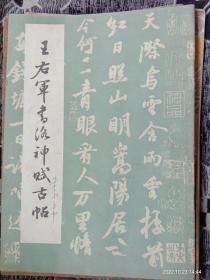 天際烏雲含雨重樓前
紅日照山明嵩陽居士
今何在青眼看人萬里情
王右軍書洛神賦古帖
錢塘一
2022.10.23 14:44